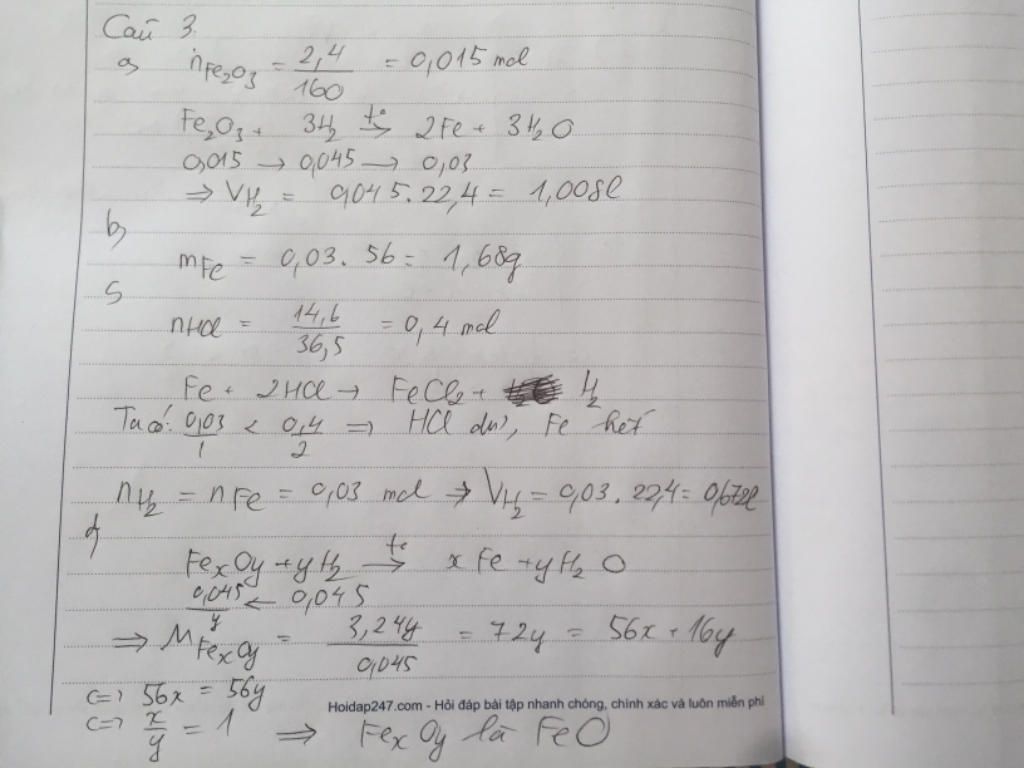 Câu 3.
a, nFe2O3 = 2,4/160 = 0,015 mol
Fe2O3 + 3H2 t°→ 2Fe + 3H2O
0,015 → 0,045 → 0,03
⇒ VH2 = 0,045.22,4 = 1,008l
b,
mFe = 0,03.56 = 1,68g
c,
nHCl = 14,6/36,5 = 0,4 mol
Fe + 2HCl → FeCl2 + H2
Ta có: 0,03/1 < 0,4/2 ⇒ HCl dư, Fe hết
nH2 = nFe = 0,03 mol ⇒ VH2 = 0,03.22,4 = 0,672l
d,
FexOy + yH2 t°→ xFe + yH2O
0,045/y ← 0,045
⇒ MFexOy = 3,24y/0,045 = 72y = 56x + 16y
<=> 56x = 56y
Hoidap247.com - Hỏi đáp bài tập nhanh chóng, chính xác và luôn miễn phí
<=> x/y = 1 ⇒ FexOy là FeO